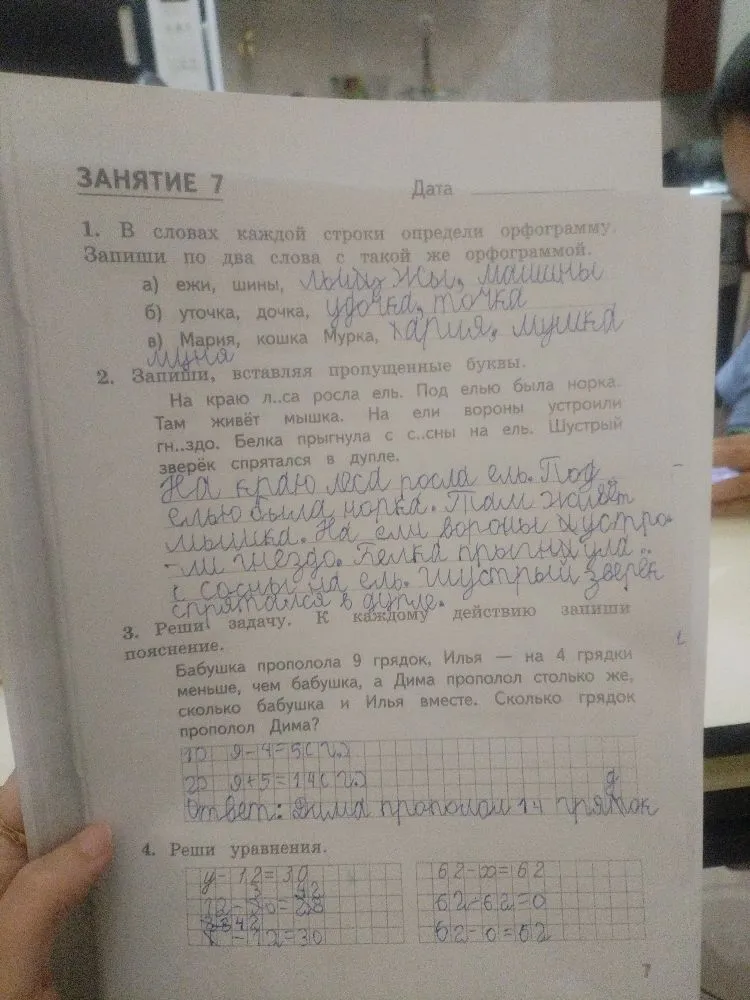 ЗАНЯТИЕ 7
Дата
1. В словах каждой строки определи орфограмму.
Запиши по два слова с такой же орфограммой.
а) ежи, шины, машины
б) уточка, дочка, удочка, точка
в) Мария, кошка Мурка, мушка
2. Запиши, вставляя пропущенные буквы.
На краю л..са росла ель. Под елью была норка.
Там живёт мышка. На ели вороны устроили
гн..здо. Белка прыгнула с с..сны на ель. Шустрый
зверёк спрятался в дупле.
На краю леса росла ель. Под
елью была норка. Там живёт
мышка. На ели вороны устро-
ли гнездо. Белка прыгнула
с сосны на ель. Шустрый зверёк
спрятался в дупле.
3. Реши задачу. К каждому действию запиши
пояснение.
Бабушка прополола 9 грядок, Илья — на 4 грядки
меньше, чем бабушка, а Дима прополол столько же,
сколько бабушка и Илья вместе. Сколько грядок
прополол Дима?
1) 9-4=5(г.)
2) 9+5=14(г.)
д
Ответ: Дима прополол 14 грядок
4. Реши уравнения.
у-12=30 62-х=62
62-62=0
-12=30 62-0=62
7